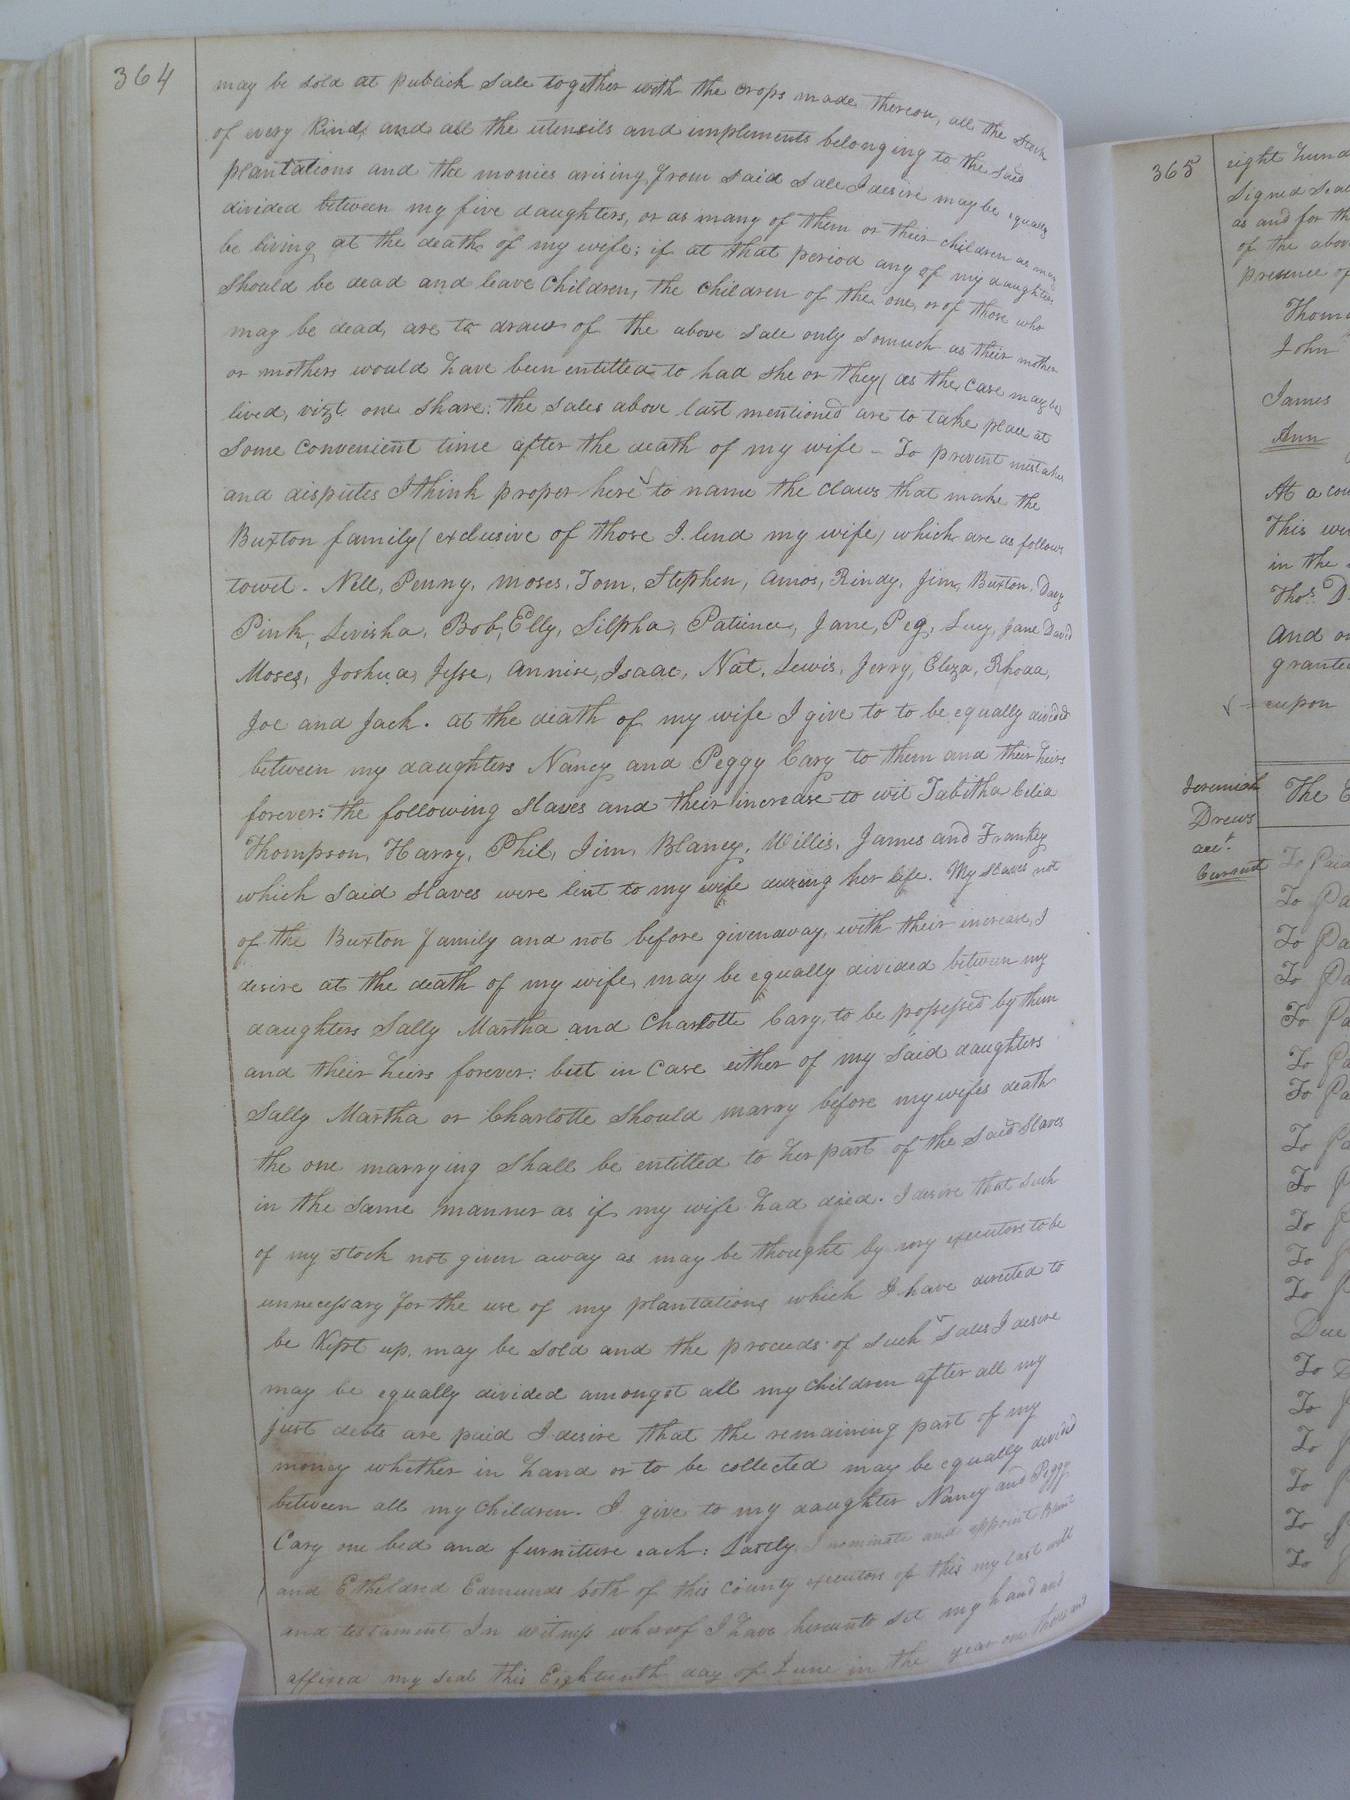 364
may be sold at publick sale together with the crops made thereon, all the stock
of every kind, and all the utensils and impliments belonging to the said
plantations and the monies arising from said sale I desire may be equally
divided between my five daughters, or as many of them or their children as may
be living at the death of my wife; if at that period any of my daughters
should be dead and leave children, the children of the one, or of those who
may be dead, are to draw of the above sale only somuch as their mother
or mothers would have been entitled to had she or they (as the case may be)
lived, vizt one share: the sales above last mentioned are to take place at
some convenient time after the death of my wife - To prevent mistakes
and disputes I think proper here to name the slaves that make the
Buxton family (exclusive of those I lend my wife) which are as follows
towit. Nell, Penny, Moses, Tom, Stephen, Amos, Rindy, Jim, Buxton, Davy
Pink, Levisha, Bob, Elly, Silpha, Patience, Jane, Peg, Lucy, Jane David
Moses, Joshua, Jesse, Annise, Isaac, Nat, Lewis, Jerry, Eliza, Rhoda,
Joe and Jack. at the death of my wife I give to to be equally divided
between my daughters Nancy and Peggy Cary to them and their heirs
forever: the following slaves and their increase to wit Tabitha Celia
Thompson, Harry, Phil, Jim, Blaney, Willis, James and Frankey
which said slaves were lent to my wife during her life. My slaves not
of the Buxton family and not before givenaway, with their increase, I
desire at the death of my wife, may be equally divided between my
daughters Sally Martha and Charlotte Cary, to be possessed by them
and their heirs forever: but in case either of my said daughters
Sally Martha or Charlotte should marry before my wifes death
the one marrying shall be entitled to her part of the said slaves
in the same manner as if my wife had died. I desire that such
of my stock not given away as may be thought by my executors to be
unnecessary for the use of my plantations which I have directed to
be kept up, may be sold and the proceeds of such sales I desire
may be equally divided amongst all my children after all my
just debts are paid I desire that the remaining part of my
money whether in hand or to be collected may be equally divided
between all my children. I give to my daughter Nancy and Peggy
Cary one bed and furniture each: Lastly I nominate and appoint
and Etheldred Edmunds both of this County executors of this my last will
and testament In witness whereof I have hereunto set my hand and
affixed my seal this Eighteenth day of June in the year one thousand
365
eight hund
Signed Seal
as and for th
of the abov
presence of
Thoma
John
James
Ann
At a cou
This wi
in the
Thos. D
And on
grante
upon
Jeremiah
Drews
acct.
Current
The E
To Paid
To Pa
To Pa
To Pa
To Pa
To Pa
To Pa
To Pa
To P
To P
To P
To P
Due
To
To
To
To
To
To